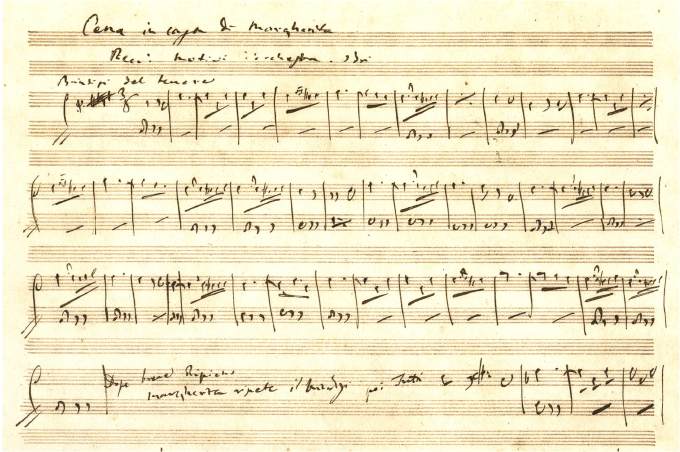 Cena in casa di Margherita
Recº: motivi d'orchestra
Brindisi del tenore
Dopo breve Ripieno
Margherita ripete il brindisi poi Tutti